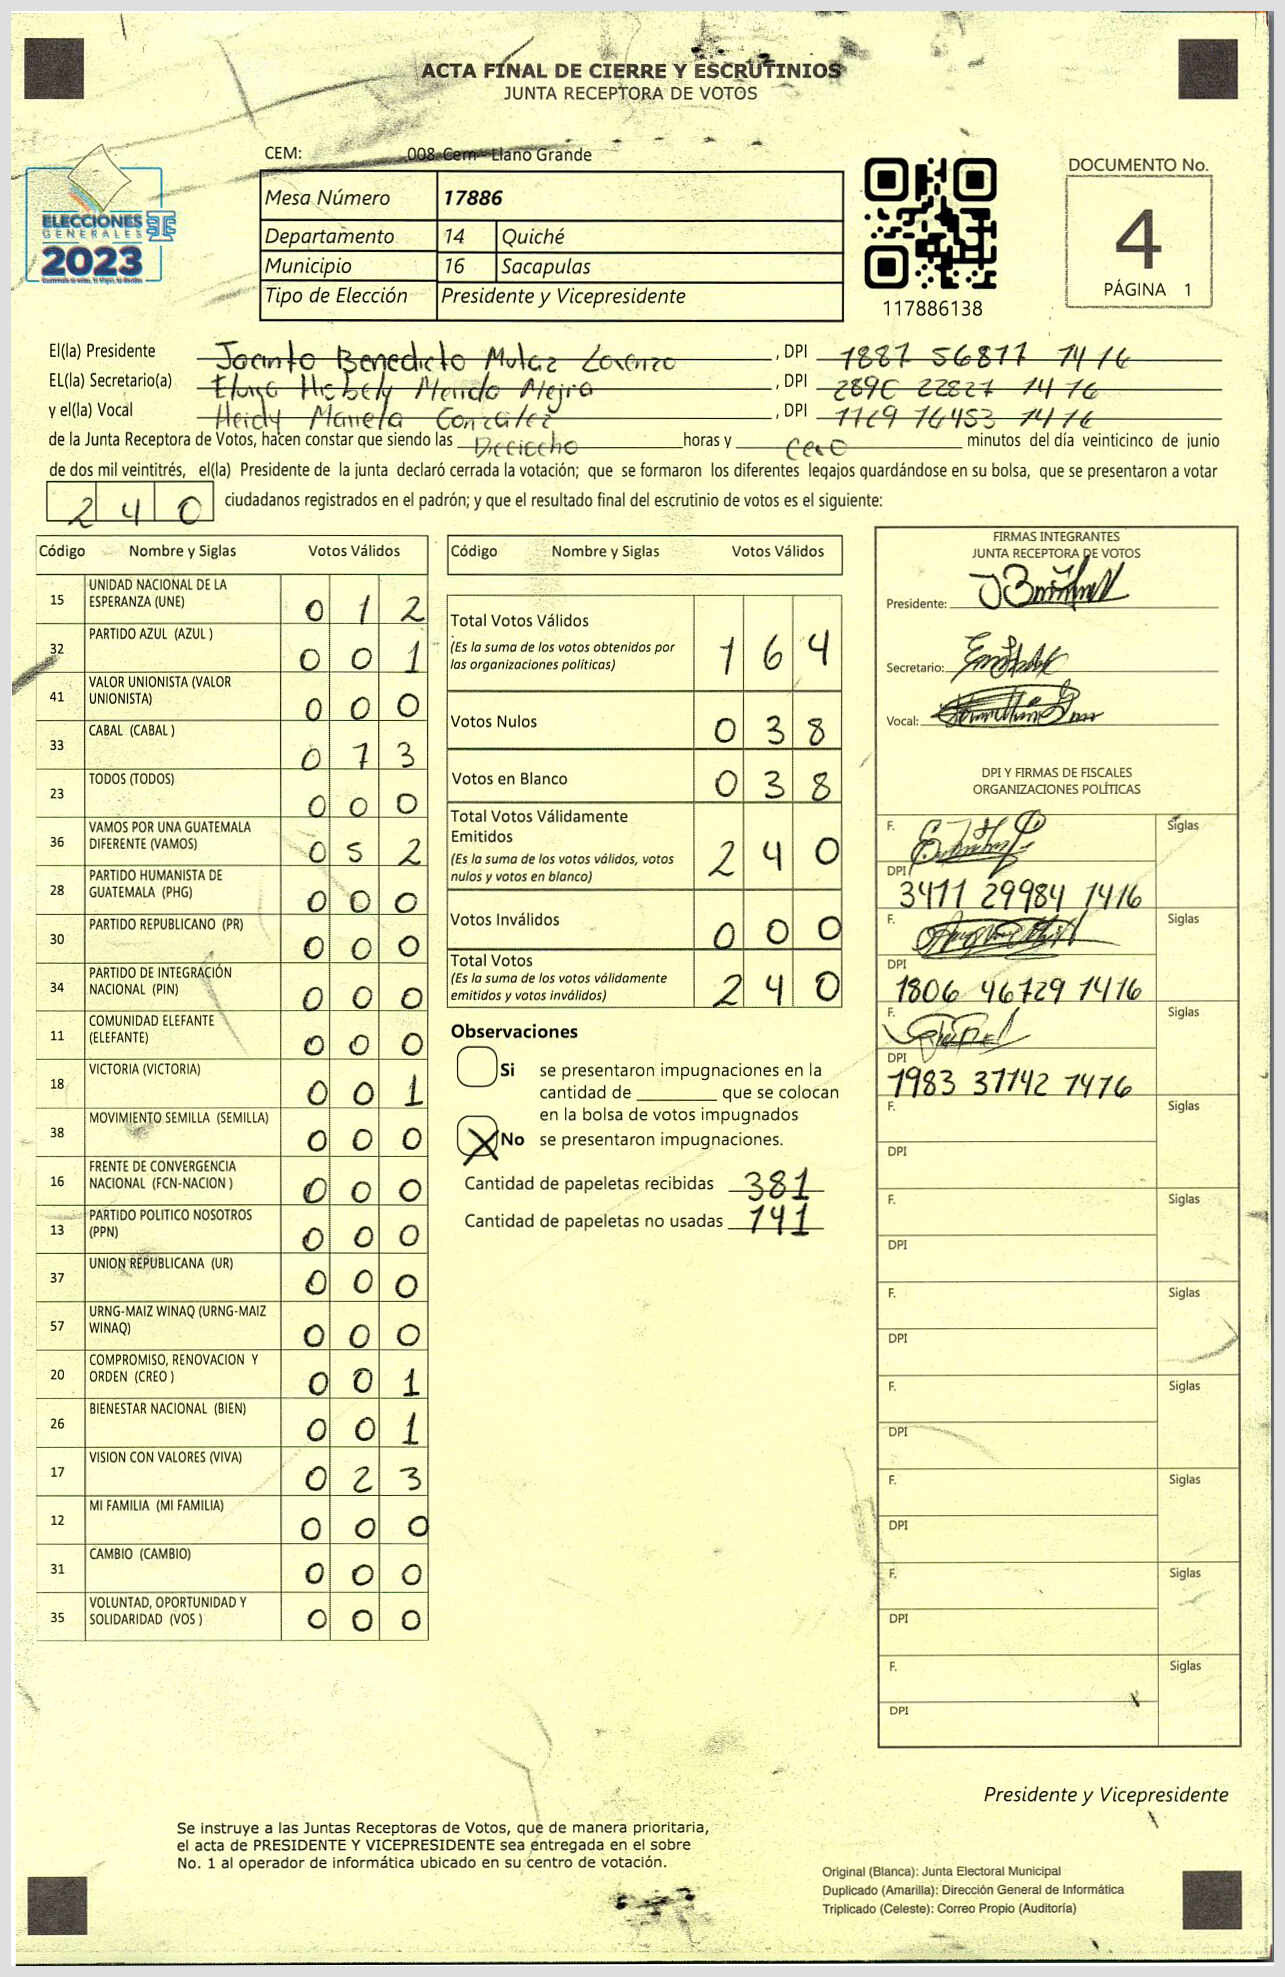 ACTA FINAL DE CIERRE Y ESCRUTINIOS
JUNTA RECEPTORA DE VOTOS
CEM: 008-Cem--Llano Grande
Mesa Número 17886
Departamento 14 Quiché
Municipio 16 Sacapulas
Tipo de Elección Presidente y Vicepresidente
ELECCIONES
GENERALES
2023
117886138
DOCUMENTO No.
4
PÁGINA 1
El(la) Presidente Jacinto Benedicto Lorenzo , DPI 1887 56877 1416
EL(la) Secretario(a) , DPI 22827 1416
y el(la) Vocal Heidy González , DPI 1416
de la Junta Receptora de Votos, hacen constar que siendo las Dieciocho horas y cero minutos del día veinticinco de junio
de dos mil veintitrés, el(la) Presidente de la junta declaró cerrada la votación; que se formaron los diferentes legajos guardándose en su bolsa, que se presentaron a votar
240 ciudadanos registrados en el padrón; y que el resultado final del escrutinio de votos es el siguiente:
Código Nombre y Siglas Votos Válidos
15 UNIDAD NACIONAL DE LA ESPERANZA (UNE) 0 1 2
32 PARTIDO AZUL (AZUL ) 0 0 1
41 VALOR UNIONISTA (VALOR UNIONISTA) 0 0 0
33 CABAL (CABAL ) 0 7 3
23 TODOS (TODOS) 0 0 0
36 VAMOS POR UNA GUATEMALA DIFERENTE (VAMOS) 0 5 2
28 PARTIDO HUMANISTA DE GUATEMALA (PHG) 0 0 0
30 PARTIDO REPUBLICANO (PR) 0 0 0
34 PARTIDO DE INTEGRACIÓN NACIONAL (PIN) 0 0 0
11 COMUNIDAD ELEFANTE (ELEFANTE) 0 0 0
18 VICTORIA (VICTORIA) 0 0 1
38 MOVIMIENTO SEMILLA (SEMILLA) 0 0 0
16 FRENTE DE CONVERGENCIA NACIONAL (FCN-NACION ) 0 0 0
13 PARTIDO POLITICO NOSOTROS (PPN) 0 0 0
37 UNION REPUBLICANA (UR) 0 0 0
57 URNG-MAIZ WINAQ (URNG-MAIZ WINAQ) 0 0 0
20 COMPROMISO, RENOVACION Y ORDEN (CREO ) 0 0 1
26 BIENESTAR NACIONAL (BIEN) 0 0 1
17 VISION CON VALORES (VIVA) 0 2 3
12 MI FAMILIA (MI FAMILIA) 0 0 0
31 CAMBIO (CAMBIO) 0 0 0
35 VOLUNTAD, OPORTUNIDAD Y SOLIDARIDAD (VOS ) 0 0 0
Código Nombre y Siglas Votos Válidos
Total Votos Válidos 1 6 4
(Es la suma de los votos obtenidos por
las organizaciones políticas)
Votos Nulos 0 3 8
Votos en Blanco 0 3 8
Total Votos Válidamente
Emitidos 2 4 0
(Es la suma de los votos válidos, votos
nulos y votos en blanco)
Votos Inválidos 0 0 0
Total Votos 2 4 0
(Es la suma de los votos válidamente
emitidos y votos inválidos)
Observaciones
Si se presentaron impugnaciones en la
cantidad de ________ que se colocan
en la bolsa de votos impugnados
X No se presentaron impugnaciones.
Cantidad de papeletas recibidas 381
Cantidad de papeletas no usadas 141
FIRMAS INTEGRANTES
JUNTA RECEPTORA DE VOTOS
Presidente:
Secretario:
Vocal:
DPI Y FIRMAS DE FISCALES
ORGANIZACIONES POLÍTICAS
F. Siglas
DPI 3411 29984 1416
F. Siglas
DPI 1806 46729 1416
F. Siglas
DPI 1983 37142 1416
F. Siglas
DPI
F. Siglas
DPI
F. Siglas
DPI
F. Siglas
DPI
F. Siglas
DPI
F. Siglas
DPI
F. Siglas
DPI
Presidente y Vicepresidente
Se instruye a las Juntas Receptoras de Votos, que de manera prioritaria,
el acta de PRESIDENTE Y VICEPRESIDENTE sea entregada en el sobre
No. 1 al operador de informática ubicado en su centro de votación.
Original (Blanca): Junta Electoral Municipal
Duplicado (Amarilla): Dirección General de Informática
Triplicado (Celeste): Correo Propio (Auditoría)